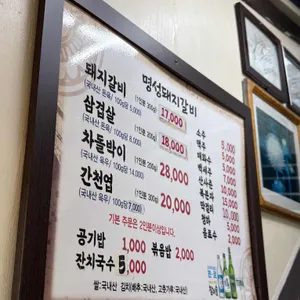 명성돼지갈비
돼지갈비 (1인분 300g) 17,000
(국내산 돈육/100g당
삼겹살 (1인분 300g) 18,000
(국내산 돈육/100g당 6,000)
차돌박이 (1인분 200g) 28,000
(국내산 육우/100g당 14,000)
간천엽 (1인분 300g) 20,000
(국내산 육우/100g당 7,000)
기본 주문은 2인분이상입니다.
공기밥 1,000 볶음밥 2,000
잔치국수 5,000
쌀:국내산 김치(배추:국내산, 고춧가루:국내산)
소주 5,000
맥주
매화수
백세주
산사춘
복분자
막걸리
청하
음료수 2,000